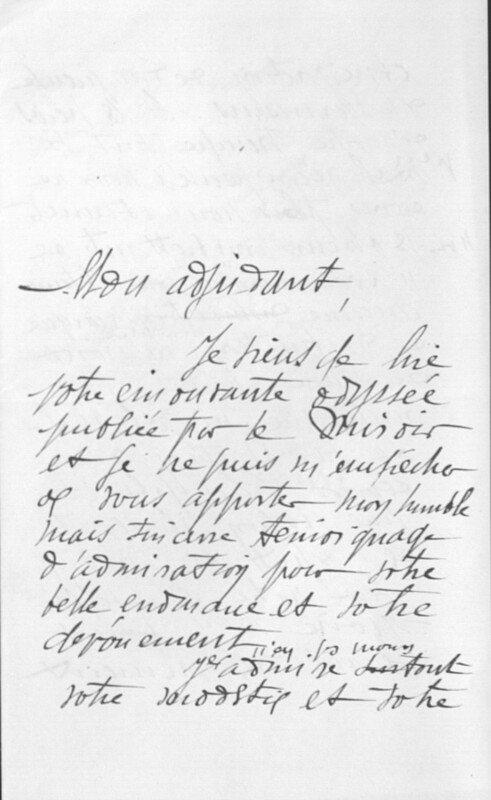 Mon adjudant,
Je viens de lire
votre émouvante odyssée
publiée par le Miroir
et je ne puis m'empêcher
de vous apporter mon humble
mais sincère témoignage
d'admiration pour votre
belle endurance et votre
dévouement
n'en pas moins
J'admire surtout
votre modestie et votre